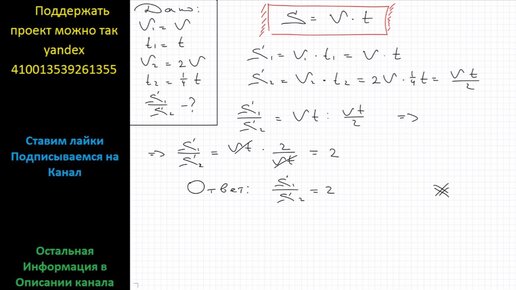 Поддержать
проект можно так
yandex
410013539261355
Ставим лайки
Подписываемся на
Канал
Остальная
Информация в
Описании канала
Дано:
v₁ = v
t₁ = t
v₂ = 2v
t₂ = ¼ t
S₁/S₂ - ?
S = v · t
S₁ = v₁ · t₁ = v · t
S₂ = v₂ · t₂ = 2v · ¼ t = vt/2
S₁/S₂ = vt : vt/2 =>
=> S₁/S₂ = vt · 2/vt = 2
Ответ: S₁/S₂ = 2